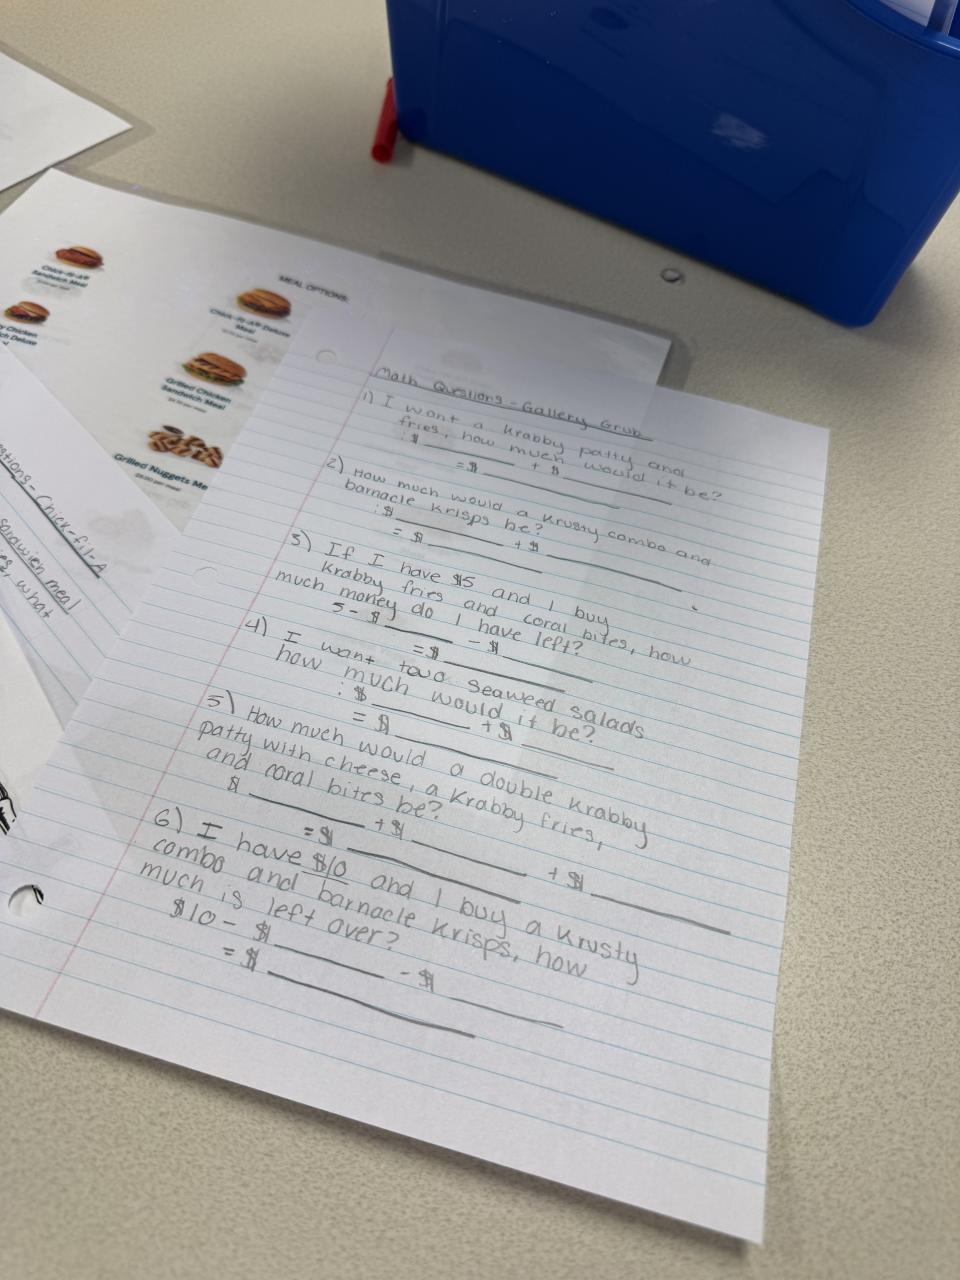 MEAL OPTIONS:
Chick-fil-A®
Sandwich Meal
Chick-fil-A® Deluxe
Meal
y Chicken
ch Deluxe
Grilled Chicken
Sandwich Meal
Grilled Nuggets Me
$9.00 per meal
stions - Chick-fil-A
sandwich meal
what
Math Questions - Gallery Grub
1) I want a krabby patty and
fries, how much would it be?
: $ + $
= $
2) How much would a Krusty combo and
barnacle krisps be?
: $ + $
= $
3) If I have $5 and I buy
krabby fries and coral bites, how
much money do I have left?
5 - $ - $
= $
4) I want two seaweed salads
how much would it be?
: $ + $
= $
5) How much would a double krabby
patty with cheese, a Krabby fries,
and coral bites be?
$ + $ + $
= $
6) I have $10 and I buy a Krusty
combo and barnacle krisps, how
much is left over?
$10 - $ - $
= $